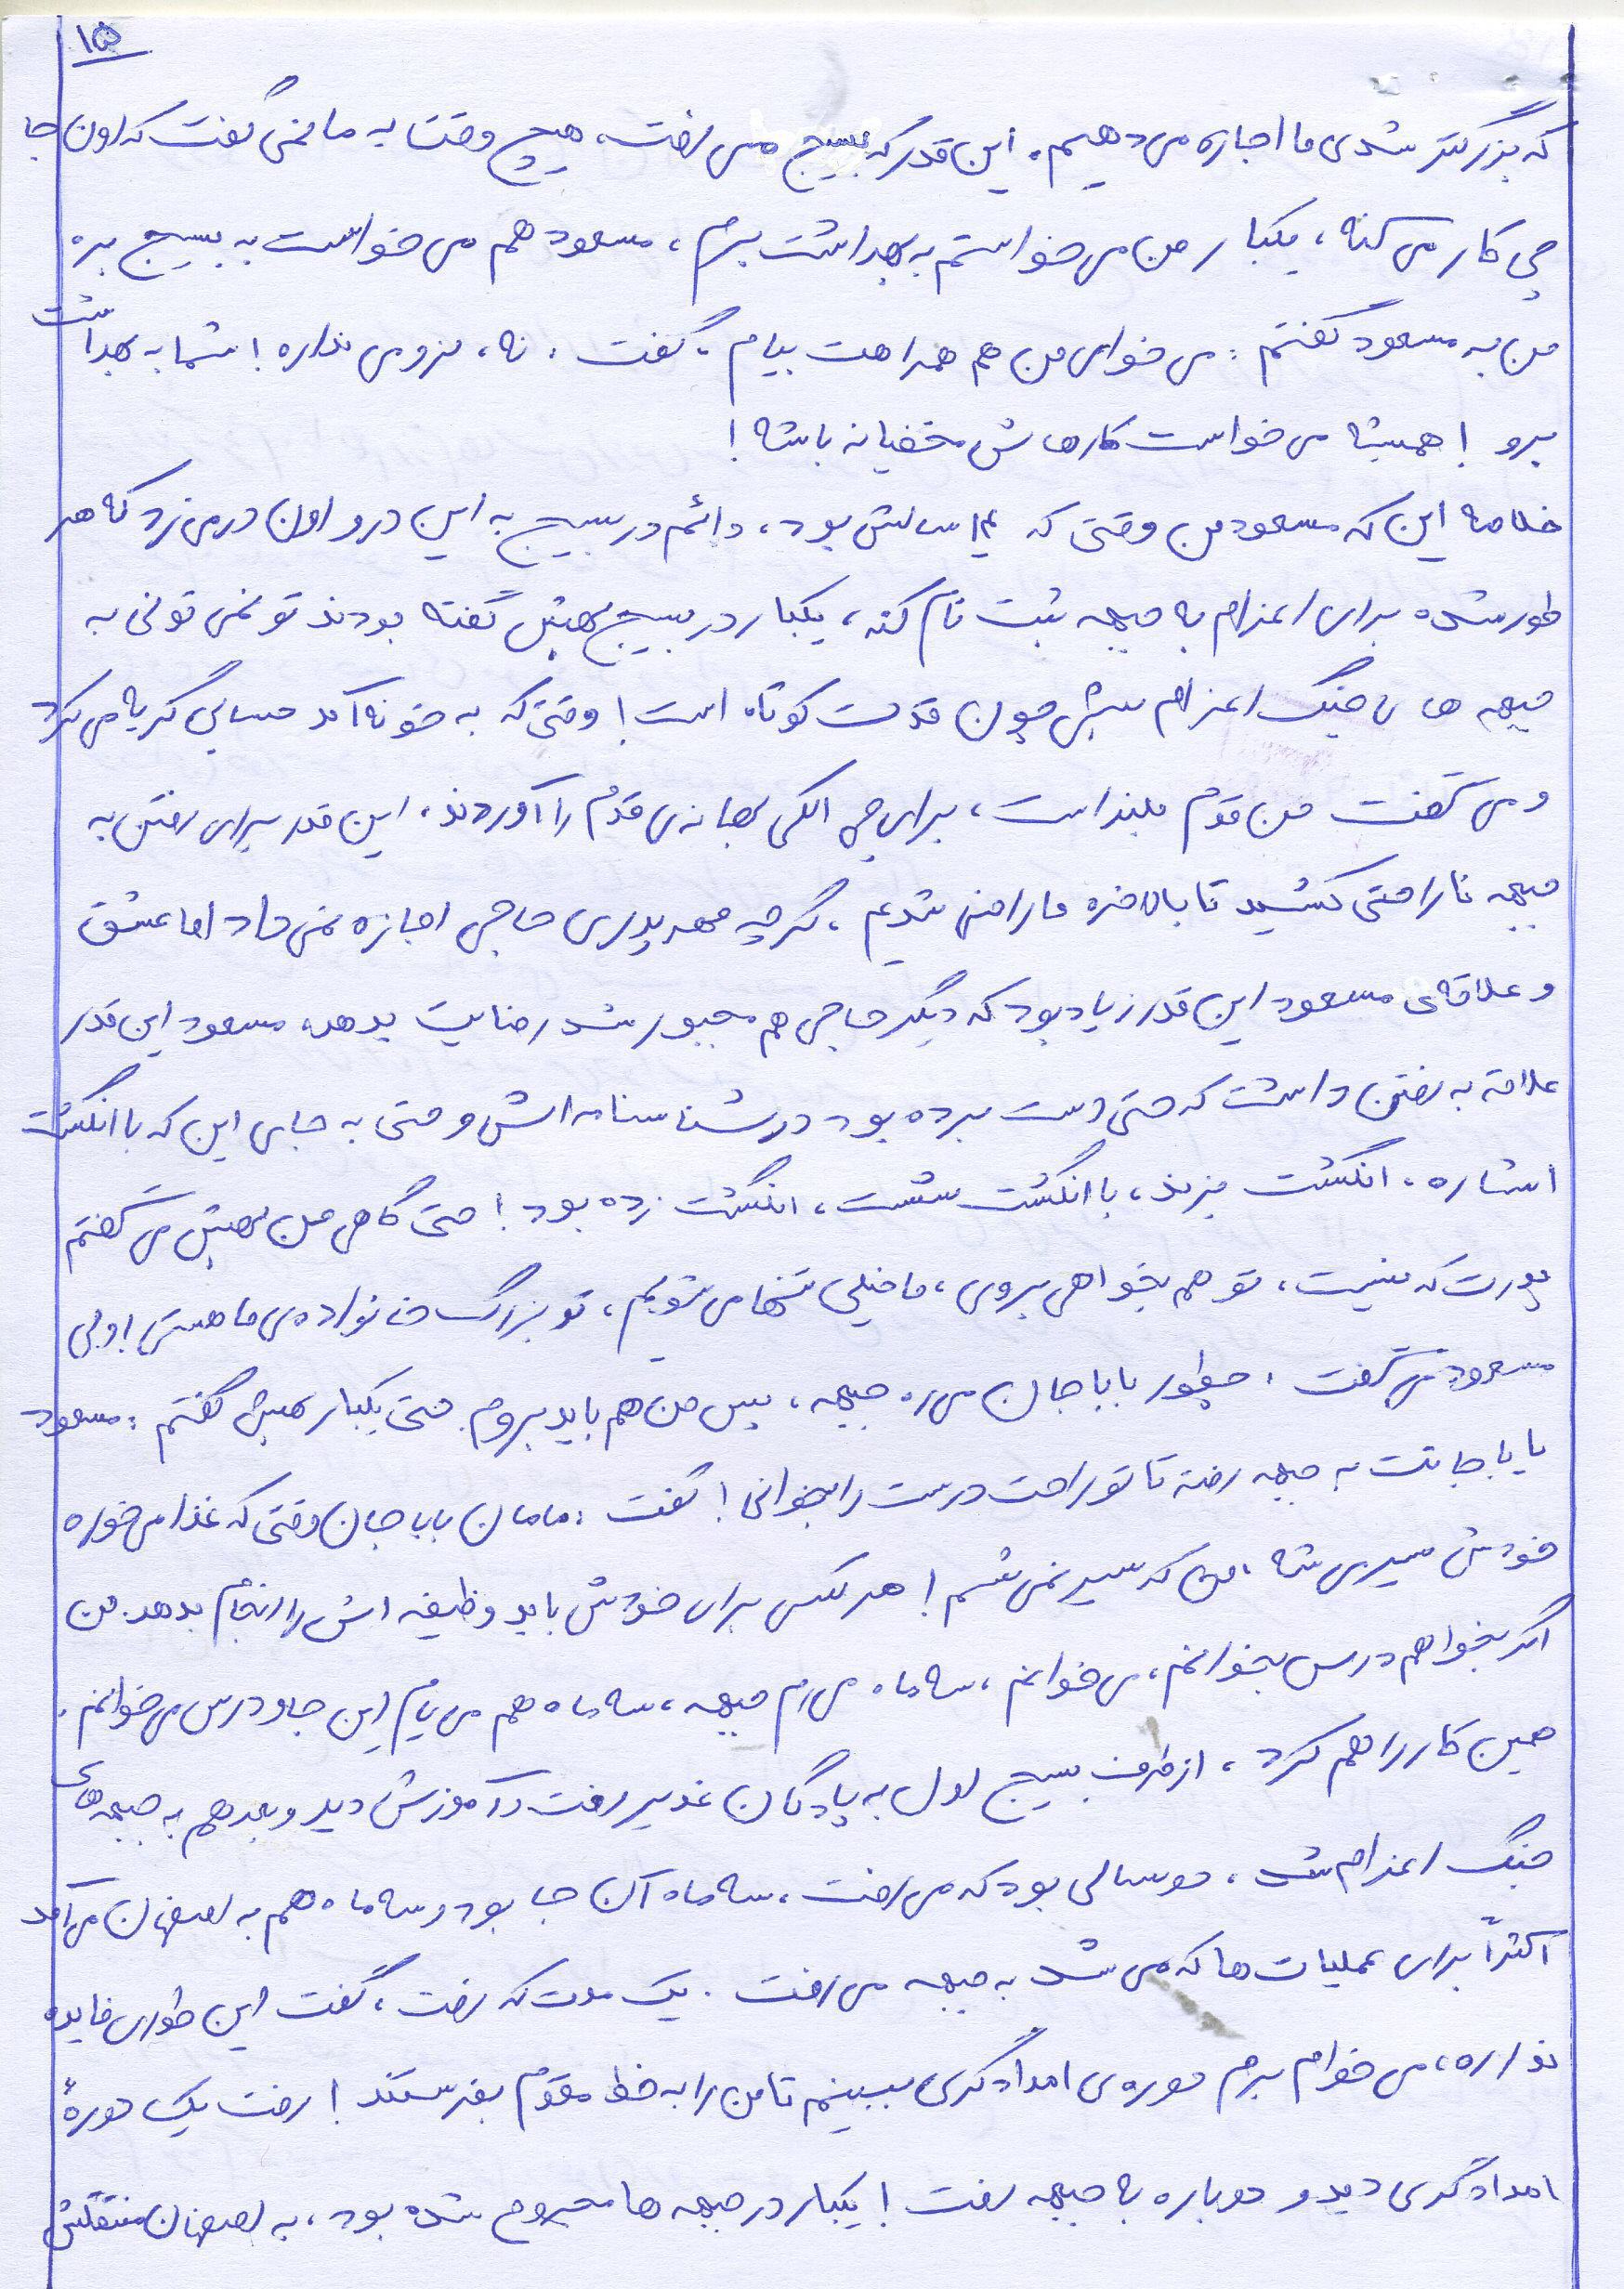 ۱۵
که بزرگتر شدی ما اجازه می دهیم. این قدر که بسیج می رفت، هیچ وقت به ما نمی گفت که اون جا
چی کار می کنه، یکبار من می خواستم به بهداشت برم، مسعود هم می خواست به بسیج بره
من به مسعود گفتم: می خوای من هم همراهت بیام، گفت: نه، لزومی نداره! شما به بهداشت
برو! همیشه می خواست کارهاش مخفیانه باشه!
خلاصه این که مسعود من وقتی که سالش بود، دائم در بسیج به این در و اون در می زد که هر
طور شده برای اعزام به جبهه ثبت نام کنه، یکبار در بسیج بهش گفته بودند تو نمی تونی به
جبهه های جنگ اعزام بشی چون قدت کوتاه است! وقتی که به خونه آمد حسابی گریه می کرد
و می گفت من قدم بلند است، برای چی الکی بهانه ی قدم را آوردند، این قدر برای رفتن به
جبهه ناراحتی کشید تا بالاخره ما راضی شدیم، گرچه مهر پدری حاجی اجازه نمی داد اما عشق
و علاقه ی مسعود این قدر زیاد بود که دیگر حاجی هم مجبور شد رضایت بدهد، مسعود این قدر
علاقه به رفتن داشت که حتی دست برده بود در شناسنامه اش و حتی به جای این که با انگشت
اشاره، انگشت بزند، با انگشت شست، انگشت زده بود! حتی گاهی من بهش می گفتم
پدرت که نیست، تو هم بخواهی بروی، ما خیلی تنها می شویم، تو بزرگ خانواده ی ما هستی! ولی
مسعود می گفت: چطور بابا جان می ره جبهه، پس من هم باید بروم. حتی یکبار بهش گفتم: مسعود
بابا جانت به جبهه رفته تا تو راحت درست را بخوانی! گفت: مامان بابا جان وقتی که غذا می خوره
خودش سیر می شه، من که سیر نمی شم! هر کس برای خودش باید وظیفه اش را انجام بدهد. من
اگر بخواهم درس بخوانم، می خوانم، سه ماه می رم جبهه، سه ماه هم می یام این جا و درس می خوانم.
همین کار را هم کرد، از طرف بسیج اول به پادگان غدیر رفت و آموزش دید و بعد هم به جبهه های
جنگ اعزام شد، دو سالی بود که می رفت، سه ماه آن جا بود و سه ماه هم به اصفهان می آمد
اکثراً برای عملیات ها که می شد به جبهه می رفت. یک مدت که رفت، گفت این طوری فایده
نداره، می خوام برم دوره ی امدادگری ببینم تا من را به خط مقدم بفرستند! رفت یک دورهٔ
امدادگری دید و دوباره به جبهه رفت! یکبار در جبهه ها مجروح شده بود، به اصفهان منتقلش